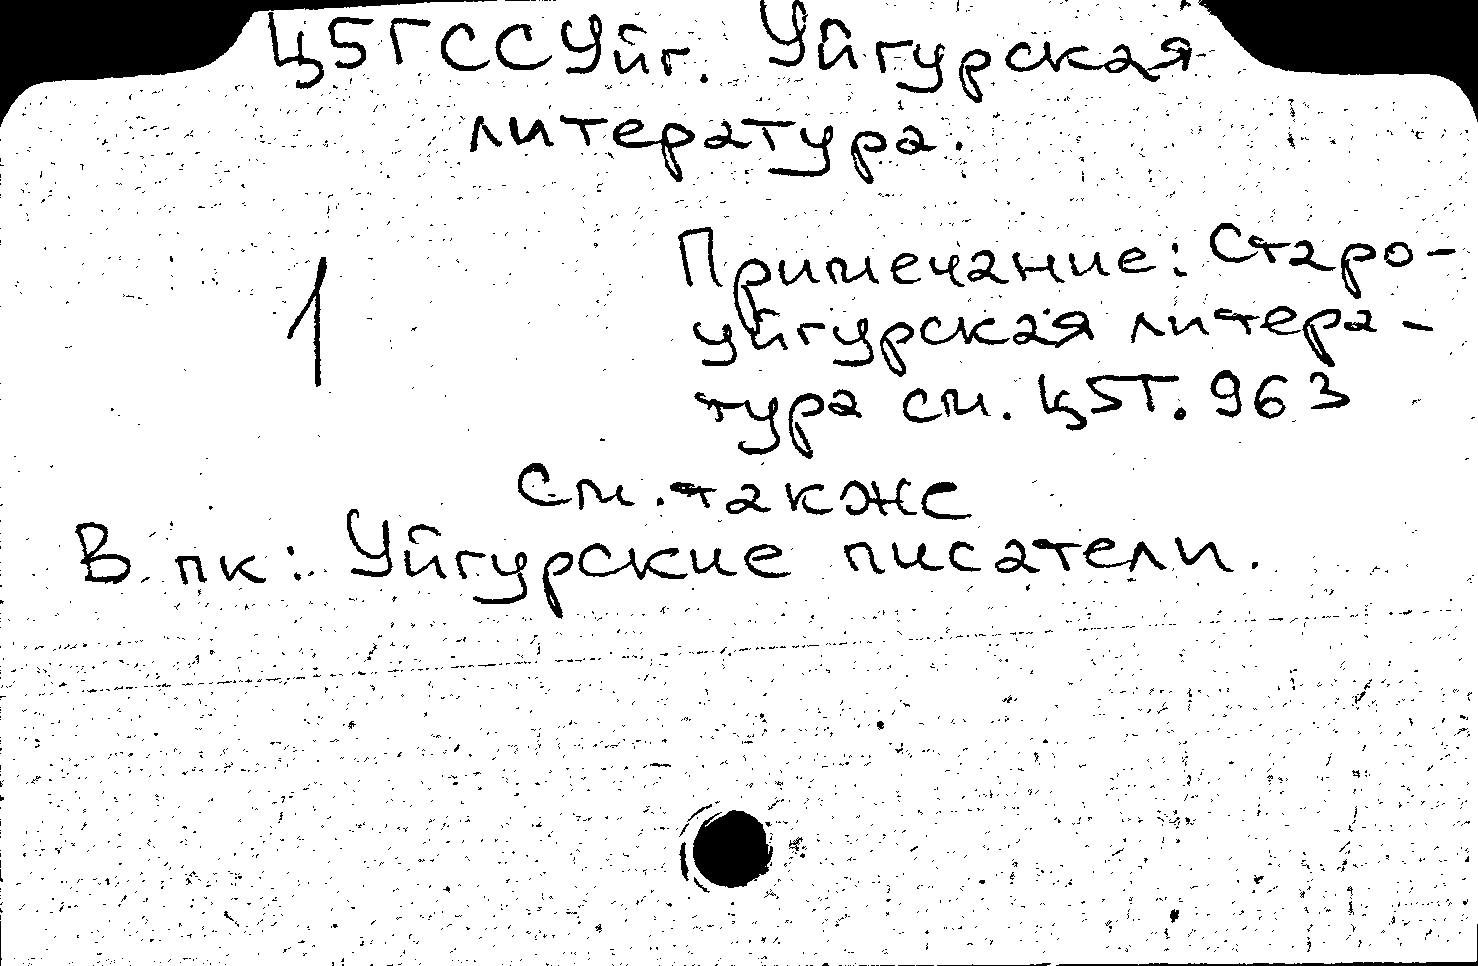 Ц5ГССУйг. Уйгурская
литература.
1
Примечание: Старо-
уйгурская литера-
тура см. Ц5Т. 963
См. также
В пк: Уйгурские писатели.